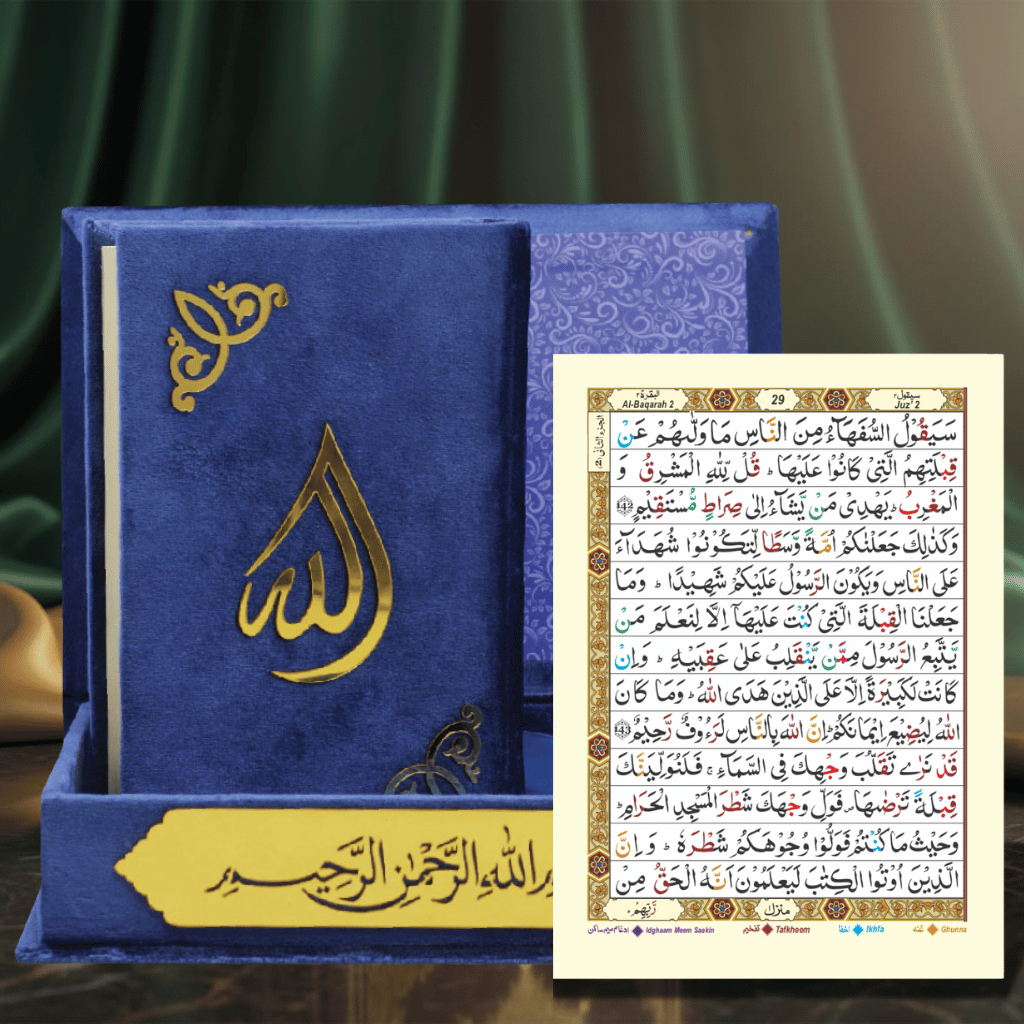 الله
بسم الله الرحمن الرحيم
البقرة ٢
Al-Baqarah 2
29
سيقول ٢
Juz' 2
الجزء الثانى (2)
سَيَقُوْلُ السُّفَهَآءُ مِنَ النَّاسِ مَا وَلّٰىهُمْ عَنْ
قِبْلَتِهِمُ الَّتِىْ كَانُوْا عَلَيْهَا ؕ قُلْ لِّلّٰهِ الْمَشْرِقُ وَ
الْمَغْرِبُ ؕ يَهْدِىْ مَنْ يَّشَآءُ اِلٰى صِرَاطٍ مُّسْتَقِيْمٍ 142
وَكَذٰلِكَ جَعَلْنٰكُمْ اُمَّةً وَّسَطًا لِّتَكُوْنُوْا شُهَدَآءَ
عَلَى النَّاسِ وَيَكُوْنَ الرَّسُوْلُ عَلَيْكُمْ شَهِيْدًا ؕ وَمَا
جَعَلْنَا الْقِبْلَةَ الَّتِىْ كُنْتَ عَلَيْهَآ اِلَّا لِنَعْلَمَ مَنْ
يَّتَّبِعُ الرَّسُوْلَ مِمَّنْ يَّنْقَلِبُ عَلٰى عَقِبَيْهِ ؕ وَاِنْ
كَانَتْ لَكَبِيْرَةً اِلَّا عَلَى الَّذِيْنَ هَدَى اللّٰهُ ؕ وَمَا كَانَ
اللّٰهُ لِيُضِيْعَ اِيْمَانَكُمْ ؕ اِنَّ اللّٰهَ بِالنَّاسِ لَرَءُوْفٌ رَّحِيْمٌ 143
قَدْ نَرٰى تَقَلُّبَ وَجْهِكَ فِى السَّمَآءِ ۚ فَلَنُوَلِّيَنَّكَ
قِبْلَةً تَرْضٰىهَا ۪ فَوَلِّ وَجْهَكَ شَطْرَ الْمَسْجِدِ الْحَرَامِ ؕ
وَحَيْثُ مَا كُنْتُمْ فَوَلُّوْا وُجُوْهَكُمْ شَطْرَهٗ ؕ وَاِنَّ
الَّذِيْنَ اُوْتُوا الْكِتٰبَ لَيَعْلَمُوْنَ اَنَّهُ الْحَقُّ مِنْ
رَّبِّهِمْ ؕ
منزل
ادغام ميم ساكن Idghaam Meem Saakin
تفخيم Tafkheem
اخفا Ikhfa
غنه Ghunna